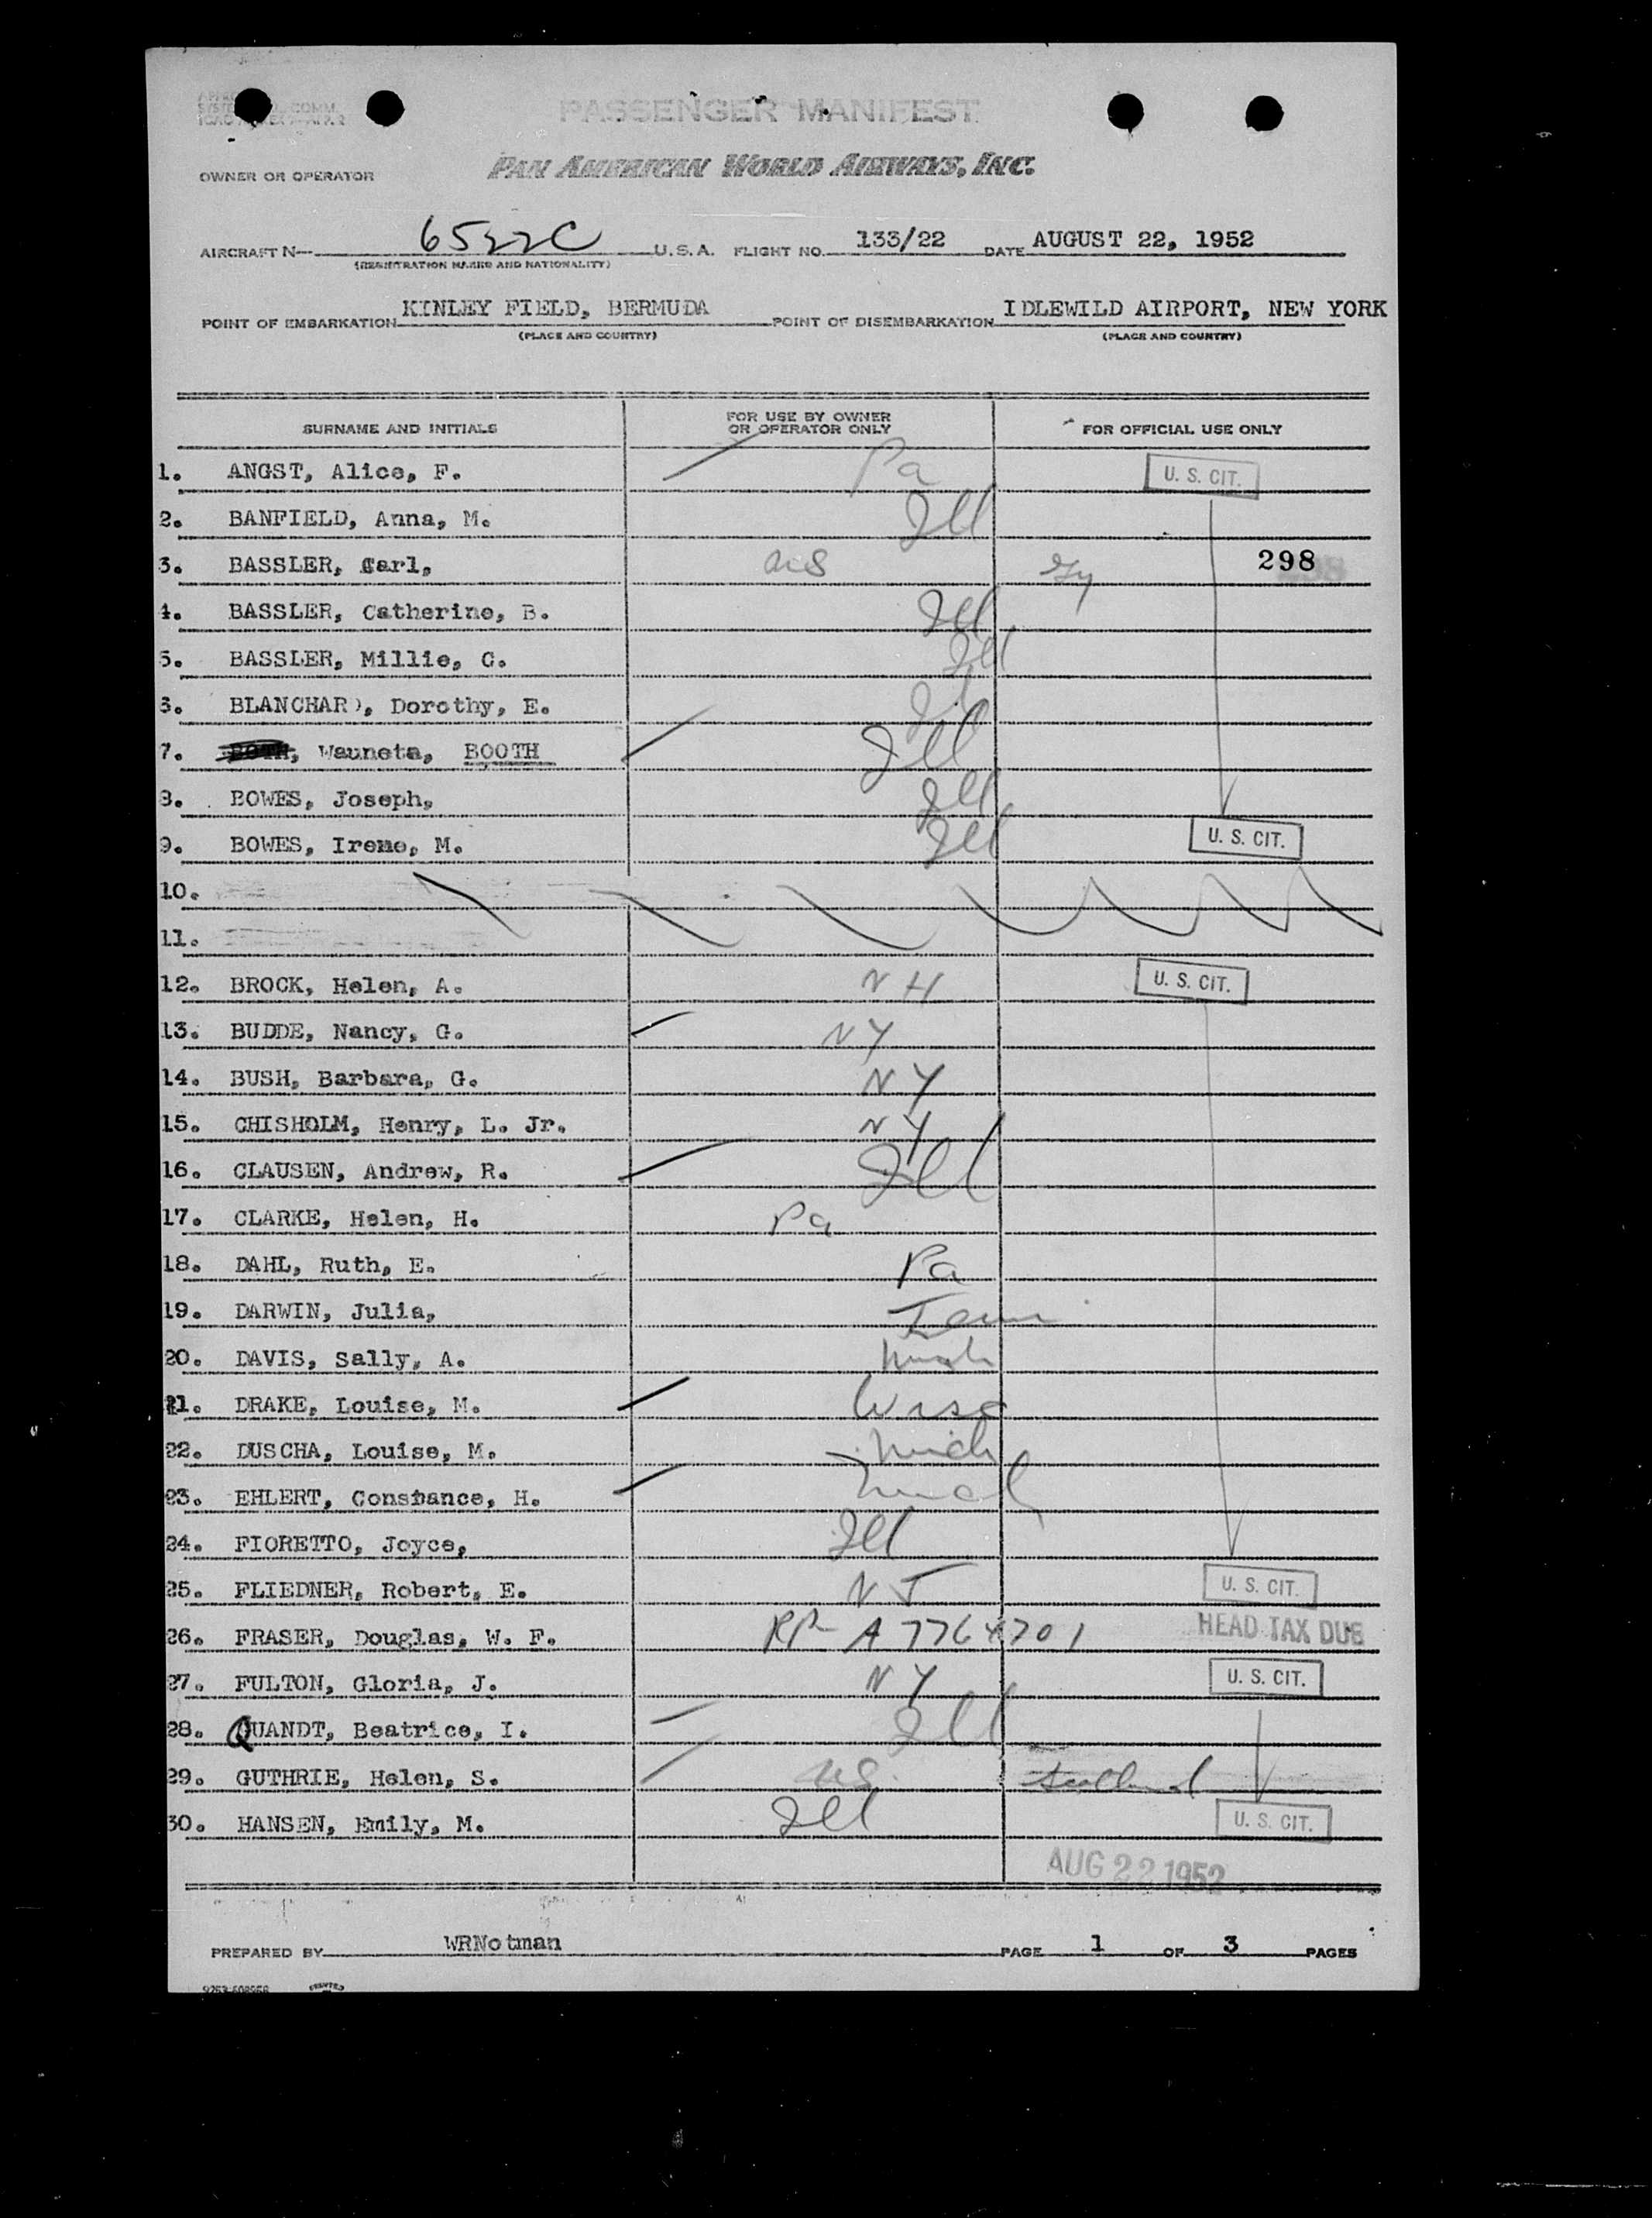 PASSENGER MANIFEST
OWNER OR OPERATOR PAN AMERICAN WORLD AIRWAYS, INC.
AIRCRAFT N— 6522C U.S.A. FLIGHT NO. 133/22 DATE AUGUST 22, 1952
(REGISTRATION MARKS AND NATIONALITY)
POINT OF EMBARKATION KINLEY FIELD, BERMUDA POINT OF DISEMBARKATION IDLEWILD AIRPORT, NEW YORK
(PLACE AND COUNTRY) (PLACE AND COUNTRY)
SURNAME AND INITIALS FOR USE BY OWNER OR OPERATOR ONLY FOR OFFICIAL USE ONLY
1. ANGST, Alice, F. Pa U. S. CIT.
2. BANFIELD, Anna, M. Ill
3. BASSLER, Carl, US 298
4. BASSLER, Catherine, B. Ill
5. BASSLER, Millie, C. Ill
6. BLANCHARD, Dorothy, E. Ill
7. Wauneta, BOOTH Ill
8. BOWES, Joseph, Ill
9. BOWES, Irene, M. Ill U. S. CIT.
10.
11.
12. BROCK, Helen, A. N H U. S. CIT.
13. BUDDE, Nancy, G. N Y
14. BUSH, Barbara, G. N Y
15. CHISHOLM, Henry, L. Jr. N Y
16. CLAUSEN, Andrew, R. Ill
17. CLARKE, Helen, H. Pa
18. DAHL, Ruth, E. Pa
19. DARWIN, Julia,
20. DAVIS, Sally, A. Mich
21. DRAKE, Louise, M. Wisc
22. DUSCHA, Louise, M. Mich
23. EHLERT, Constance, H. Mich
24. FIORETTO, Joyce, Ill
25. FLIEDNER, Robert, E. N J U. S. CIT.
26. FRASER, Douglas, W. F. RP- A 7764701 HEAD TAX DUE
27. FULTON, Gloria, J. N Y U. S. CIT.
28. QUANDT, Beatrice, I. Ill
29. GUTHRIE, Helen, S. US Scotland
30. HANSEN, Emily, M. Ill U. S. CIT.
AUG 22 1952
PREPARED BY WRNotman PAGE 1 OF 3 PAGES